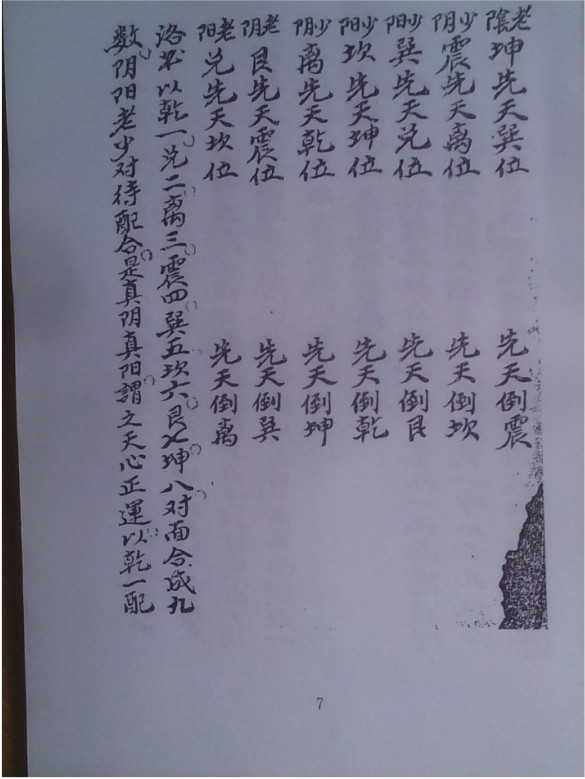 老陰坤先天巽位 先天倒震
少阴震先天离位 先天倒坎
少阳巽先天兑位 先天倒艮
少阳坎先天坤位 先天倒乾
少阴离先天乾位 先天倒坤
老阴艮先天震位 先天倒巽
老阳兑先天坎位 先天倒离
洛书以乾一兑二离三震四巽五坎六艮七坤八对面合成九
数阴阳老少对待配合是真阴真阳謂之天心正運以乾一配
7